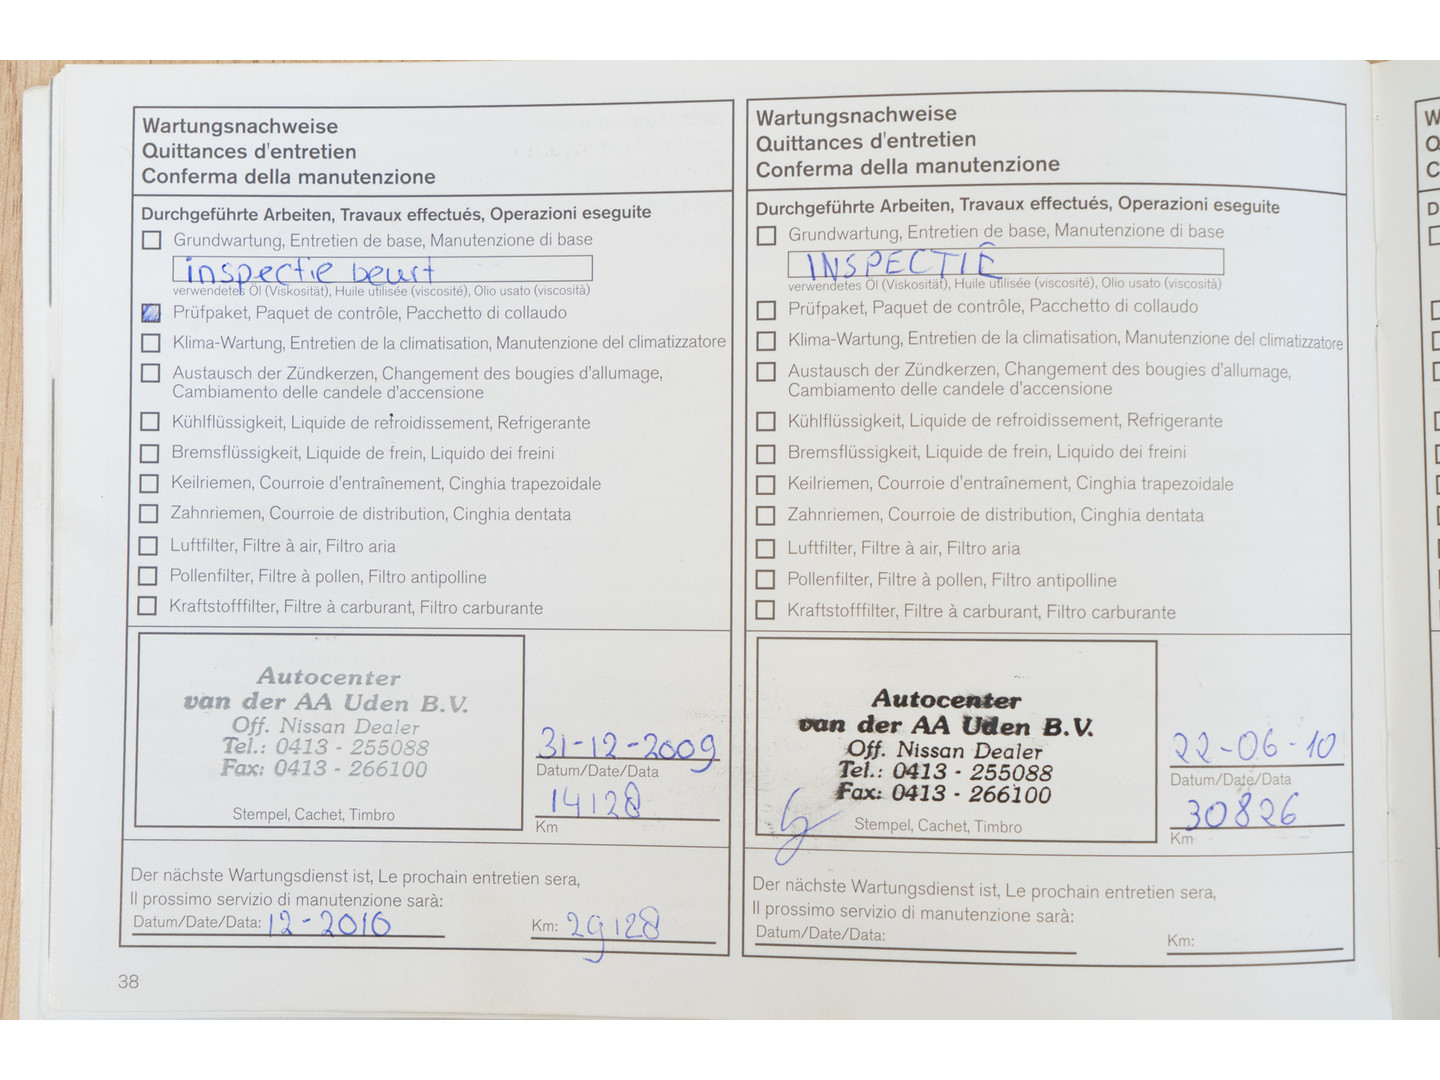 Wartungsnachweise
Quittances d'entretien
Conferma della manutenzione
Durchgeführte Arbeiten, Travaux effectués, Operazioni eseguite
Grundwartung, Entretien de base, Manutenzione di base
inspectie beurt
verwendetes Öl (Viskosität), Huile utilisée (viscosité), Olio usato (viscosità)
Prüfpaket, Paquet de contrôle, Pacchetto di collaudo
Klima-Wartung, Entretien de la climatisation, Manutenzione del climatizzatore
Austausch der Zündkerzen, Changement des bougies d'allumage,
Cambiamento delle candele d'accensione
Kühlflüssigkeit, Liquide de refroidissement, Refrigerante
Bremsflüssigkeit, Liquide de frein, Liquido dei freini
Keilriemen, Courroie d'entraînement, Cinghia trapezoidale
Zahnriemen, Courroie de distribution, Cinghia dentata
Luftfilter, Filtre à air, Filtro aria
Pollenfilter, Filtre à pollen, Filtro antipolline
Kraftstofffilter, Filtre à carburant, Filtro carburante
Autocenter
van der AA Uden B.V.
Off. Nissan Dealer
Tel.: 0413 - 255088
Fax: 0413 - 266100
Stempel, Cachet, Timbro
31-12-2009
Datum/Date/Data
14128
Km
Der nächste Wartungsdienst ist, Le prochain entretien sera,
Il prossimo servizio di manutenzione sarà:
Datum/Date/Data: 12-2010
Km: 29128
38
Wartungsnachweise
Quittances d'entretien
Conferma della manutenzione
Durchgeführte Arbeiten, Travaux effectués, Operazioni eseguite
Grundwartung, Entretien de base, Manutenzione di base
INSPECTIE
verwendetes Öl (Viskosität), Huile utilisée (viscosité), Olio usato (viscosità)
Prüfpaket, Paquet de contrôle, Pacchetto di collaudo
Klima-Wartung, Entretien de la climatisation, Manutenzione del climatizzatore
Austausch der Zündkerzen, Changement des bougies d'allumage,
Cambiamento delle candele d'accensione
Kühlflüssigkeit, Liquide de refroidissement, Refrigerante
Bremsflüssigkeit, Liquide de frein, Liquido dei freini
Keilriemen, Courroie d'entraînement, Cinghia trapezoidale
Zahnriemen, Courroie de distribution, Cinghia dentata
Luftfilter, Filtre à air, Filtro aria
Pollenfilter, Filtre à pollen, Filtro antipolline
Kraftstofffilter, Filtre à carburant, Filtro carburante
Autocenter
van der AA Uden B.V.
Off. Nissan Dealer
Tel.: 0413 - 255088
Fax: 0413 - 266100
Stempel, Cachet, Timbro
22-06-10
Datum/Date/Data
30826
Km
Der nächste Wartungsdienst ist, Le prochain entretien sera,
Il prossimo servizio di manutenzione sarà:
Datum/Date/Data:
Km: